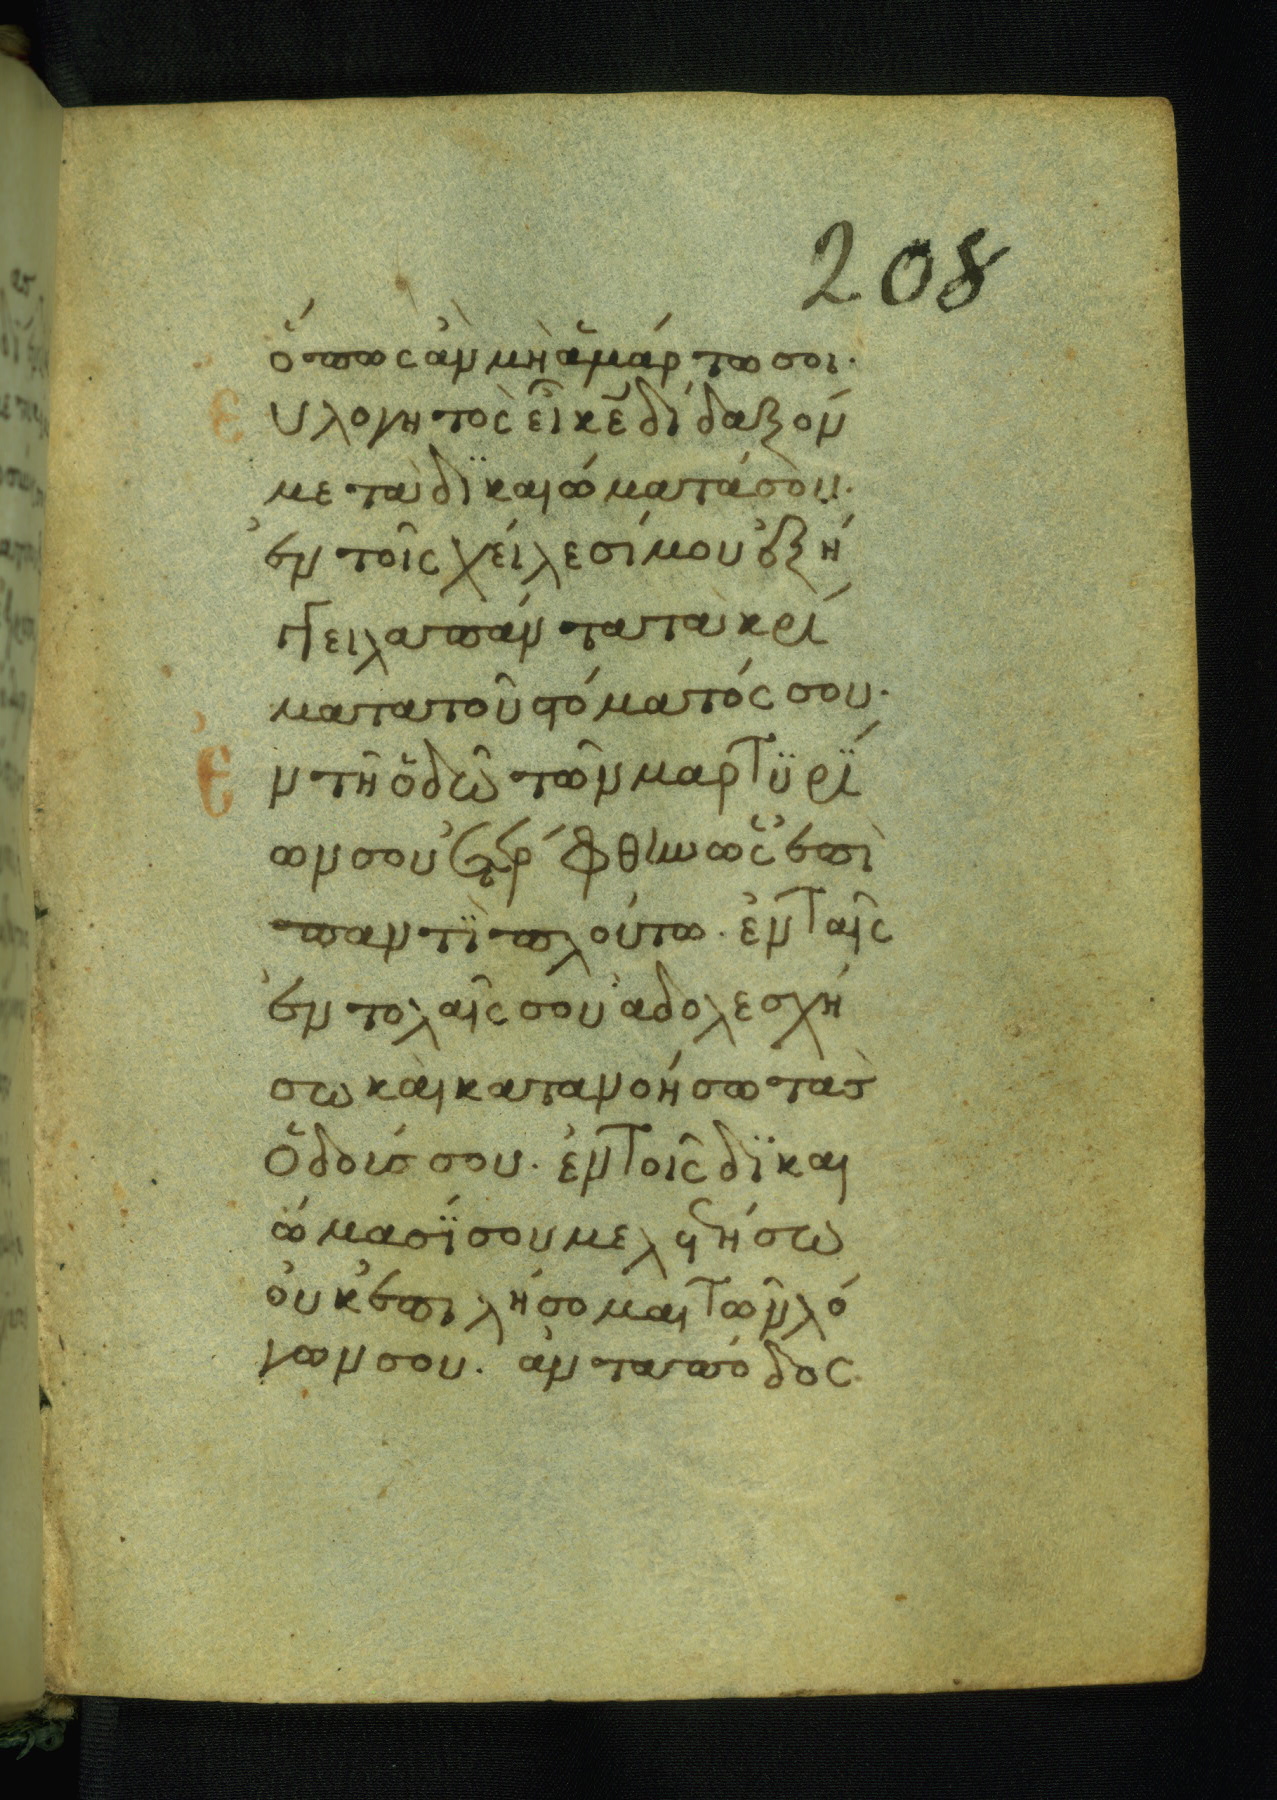 208
ὅπως ἂν μὴ ἁμάρτω σοι·
Εὐλογητὸς εἶ κε δίδαξόν
με τὰ δϊκαιώματά σου·
ἐν τοῖς χείλεσί μου ἐξή
γγειλα πάντα τὰ κρί
ματα τοῦ στόματός σου·
Ἐν τῆ ὁδῶ τῶν μαρτϋρΐ
ων σου ἐτέρφθην ὡς ἐπὶ
παντῒ πλούτω· ἐν ταῖς
ἐντολαῖς σου ἀδολεσχή
σω καὶ κατανοήσω τὰς
ὁδούς σου· ἐν τοῖς δϊκαι
ώμασΐ σου μελετήσω
οὐκ ἐπιλήσομαι τῶν λό
γων σου· ἀνταπόδος